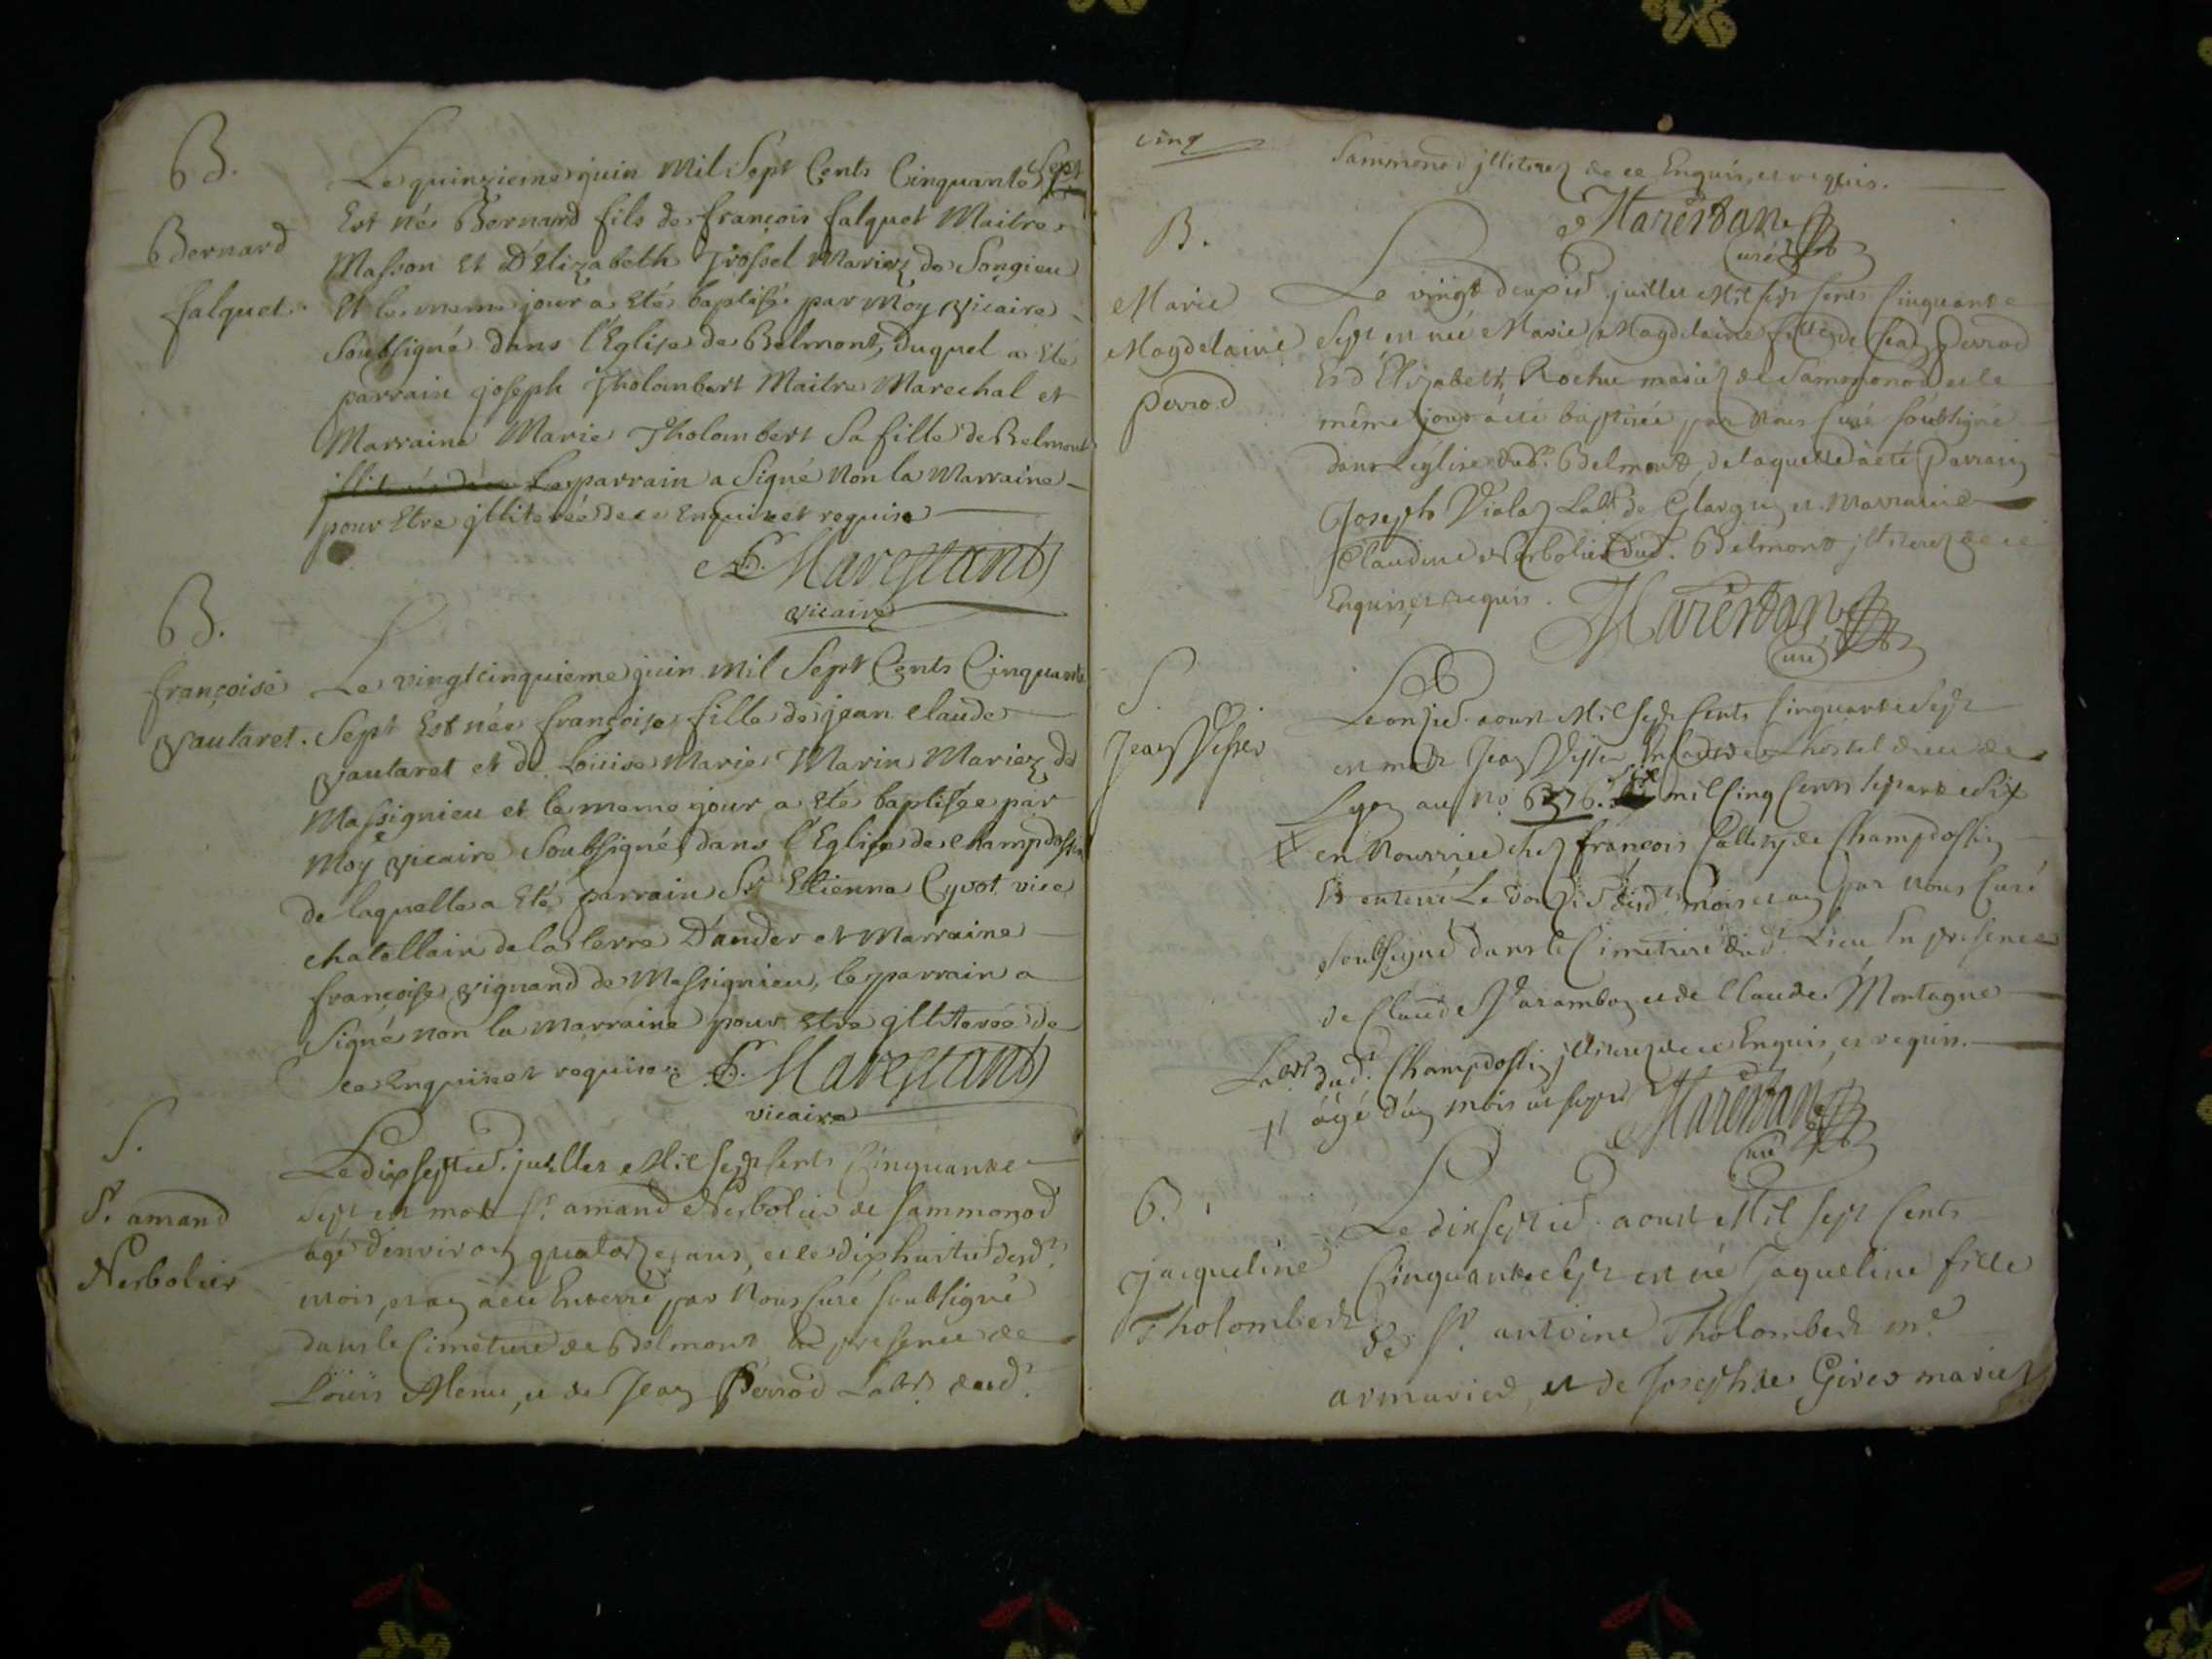 B.
Bernard
falquet.
Le quinzieme juin Mil Sept Cents Cinquante Sept
Est né Bernard fils de françois falquet Maitre
Masson et D'Elizabeth Trossel Mariez de Songieu
Et le meme jour a eté baptisé par Moy Vicaire
Soubsigné dans l'Eglise de Belmont, duquel a eté
parrain joseph Tholombert Maitre Marechal et
Marraine Marie Tholombert Sa fille de Belmont
Le parrain a Signé Non la Marraine
pour Etre illiterée de ce Enquise et requise
Marestant
Vicaire
B.
françoise
Vautaret.
Le vingtcinquieme juin Mil Sept Cents Cinquante
Sept Est née françoise fille de jean claude
Vautaret et de Loüise Marie Marin Mariez de
Massignieu et le meme jour a eté baptisée par
Moy Vicaire Soubsigné dans l'Eglise de champdossin
de laquelle a eté parrain Sr Etienne Cyvot vice
chatellain de la terre D'ander et Marraine
françoise Vignand de Massignieu, le parrain a
Signé non la marraine pour Etre illiterée de
ce Enquise et requise. Marestant
vicaire
S.
Sr. amand
Nerbolier
Le dix septie. juillet Mil sept cents Cinquante
Sept est mort Sr. amand Nerbolier de Sammonod
agé d'environ quatorze ans, et le dix huitie desd.
mois, et an a eté Enterré par Nous Curé soubsigné
dans le Cimetiere de Belmont En presence de
Loüis Menu, et de Jean Perrod Labrs. dud.
cinq
Sammonod jlliterez de ce Enquis, et requis.
Marestan
Curé
B.
Marie
Magdelaine
Perrod
Le vingt deuxie. juillet Mil sept cents Cinquante
Sept est née Marie Magdelaine fille de Perrod
Et d'Elizabeth Rochu mariez de Sammonod et le
même jour a eté baptisée par Nous Curé soubsigné
dans l'eglise dud. Belmont, de laquelle a eté Parrain
Joseph Violaz Labr. de et Marraine
Claudine Nerbolier dud. Belmont jlliterez de ce
Enquis, et requis. Marestan
Curé
S.
Jean
Le onzie. aoust Mil sept Cents Cinquante Sept
est mort Jean de L'hostel dieu de
Lyon au No. 6576. Six mil Cinq Cents Septante Six
en Nourrice chez françois de Champdossin
Et enterré Le douzie desd. mois et an par Nous Curé
soubsigné dans le Cimetiere dud. Lieu En presence
de Claude et de Claude Montagne
Labrs. dud. Champdossin jlliterez de ce Enquis, et requis.
âgé d'un mois
Marestan
Curé
B.
jacqueline
Tholombert
Le dix septie. aoust Mil sept Cents
Cinquante Sept est né Jaqueline fille
de Sr. antoine Tholombert me.
armurier, et de Josephte Girer mariez